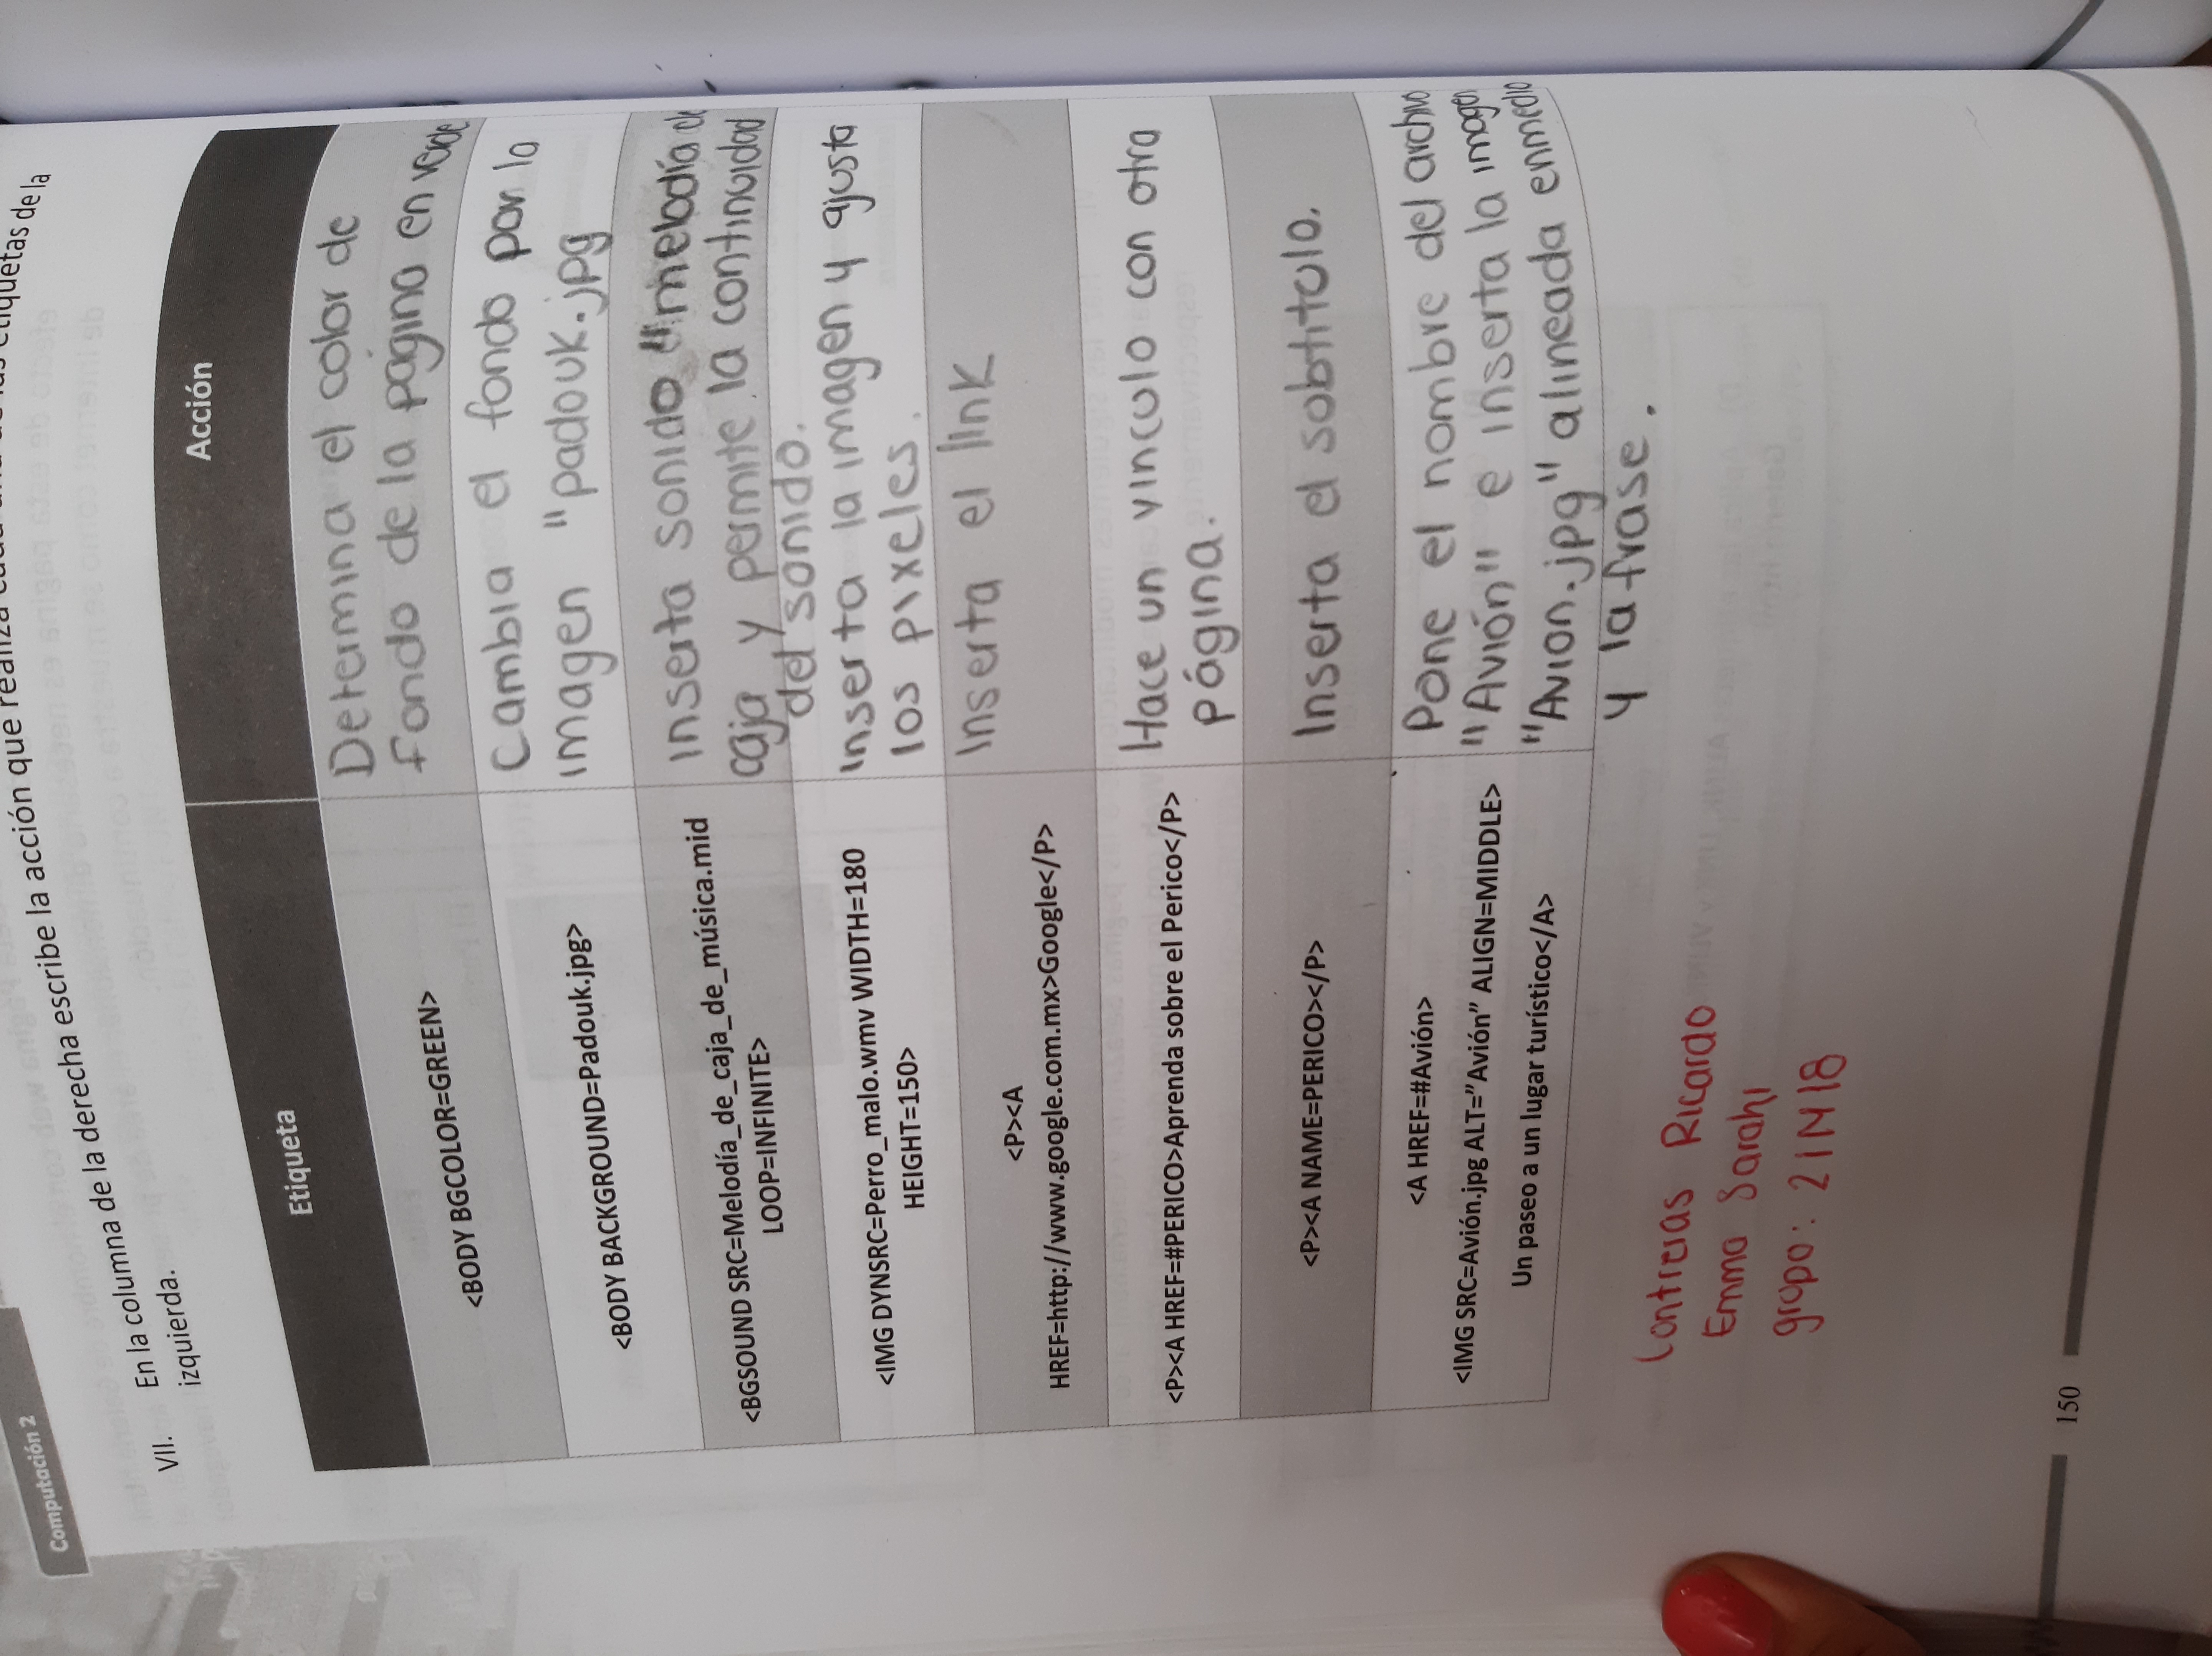 Computación 2
VII. En la columna de la derecha escribe la acción que realiza etiquetas de la
izquierda.
Etiqueta
Acción
<BODY BGCOLOR=GREEN>
Determina el color de
fondo de la página en verde
<BODY BACKGROUND=Padouk.jpg>
Cambia el fondo por la
imagen "padouk.jpg
<BGSOUND SRC=Melodía_de_caja_de_música.mid
LOOP=INFINITE>
Inserta sonido "melodía de
caja y permite la continuidad
del sonido.
<IMG DYNSRC=Perro_malo.wmv WIDTH=180
HEIGHT=150>
Inserta la imagen y ajusta
los pixeles.
<P><A
HREF=http://www.google.com.mx>Google</P>
Inserta el link
<P><A HREF=#PERICO>Aprenda sobre el Perico</P>
Hace un vinculo con otra
página.
<P><A NAME=PERICO></P>
Inserta el subtitulo.
<A HREF=#Avión>
<IMG SRC=Avión.jpg ALT=”Avión” ALIGN=MIDDLE>
Un paseo a un lugar turístico</A>
Pone el nombre del archivo
"Avión" e inserta la imagen
"Avion.jpg" alineada enmedio
y la frase.
Contreras Ricardo
Emma Sarahi
grupo: 21N18
150